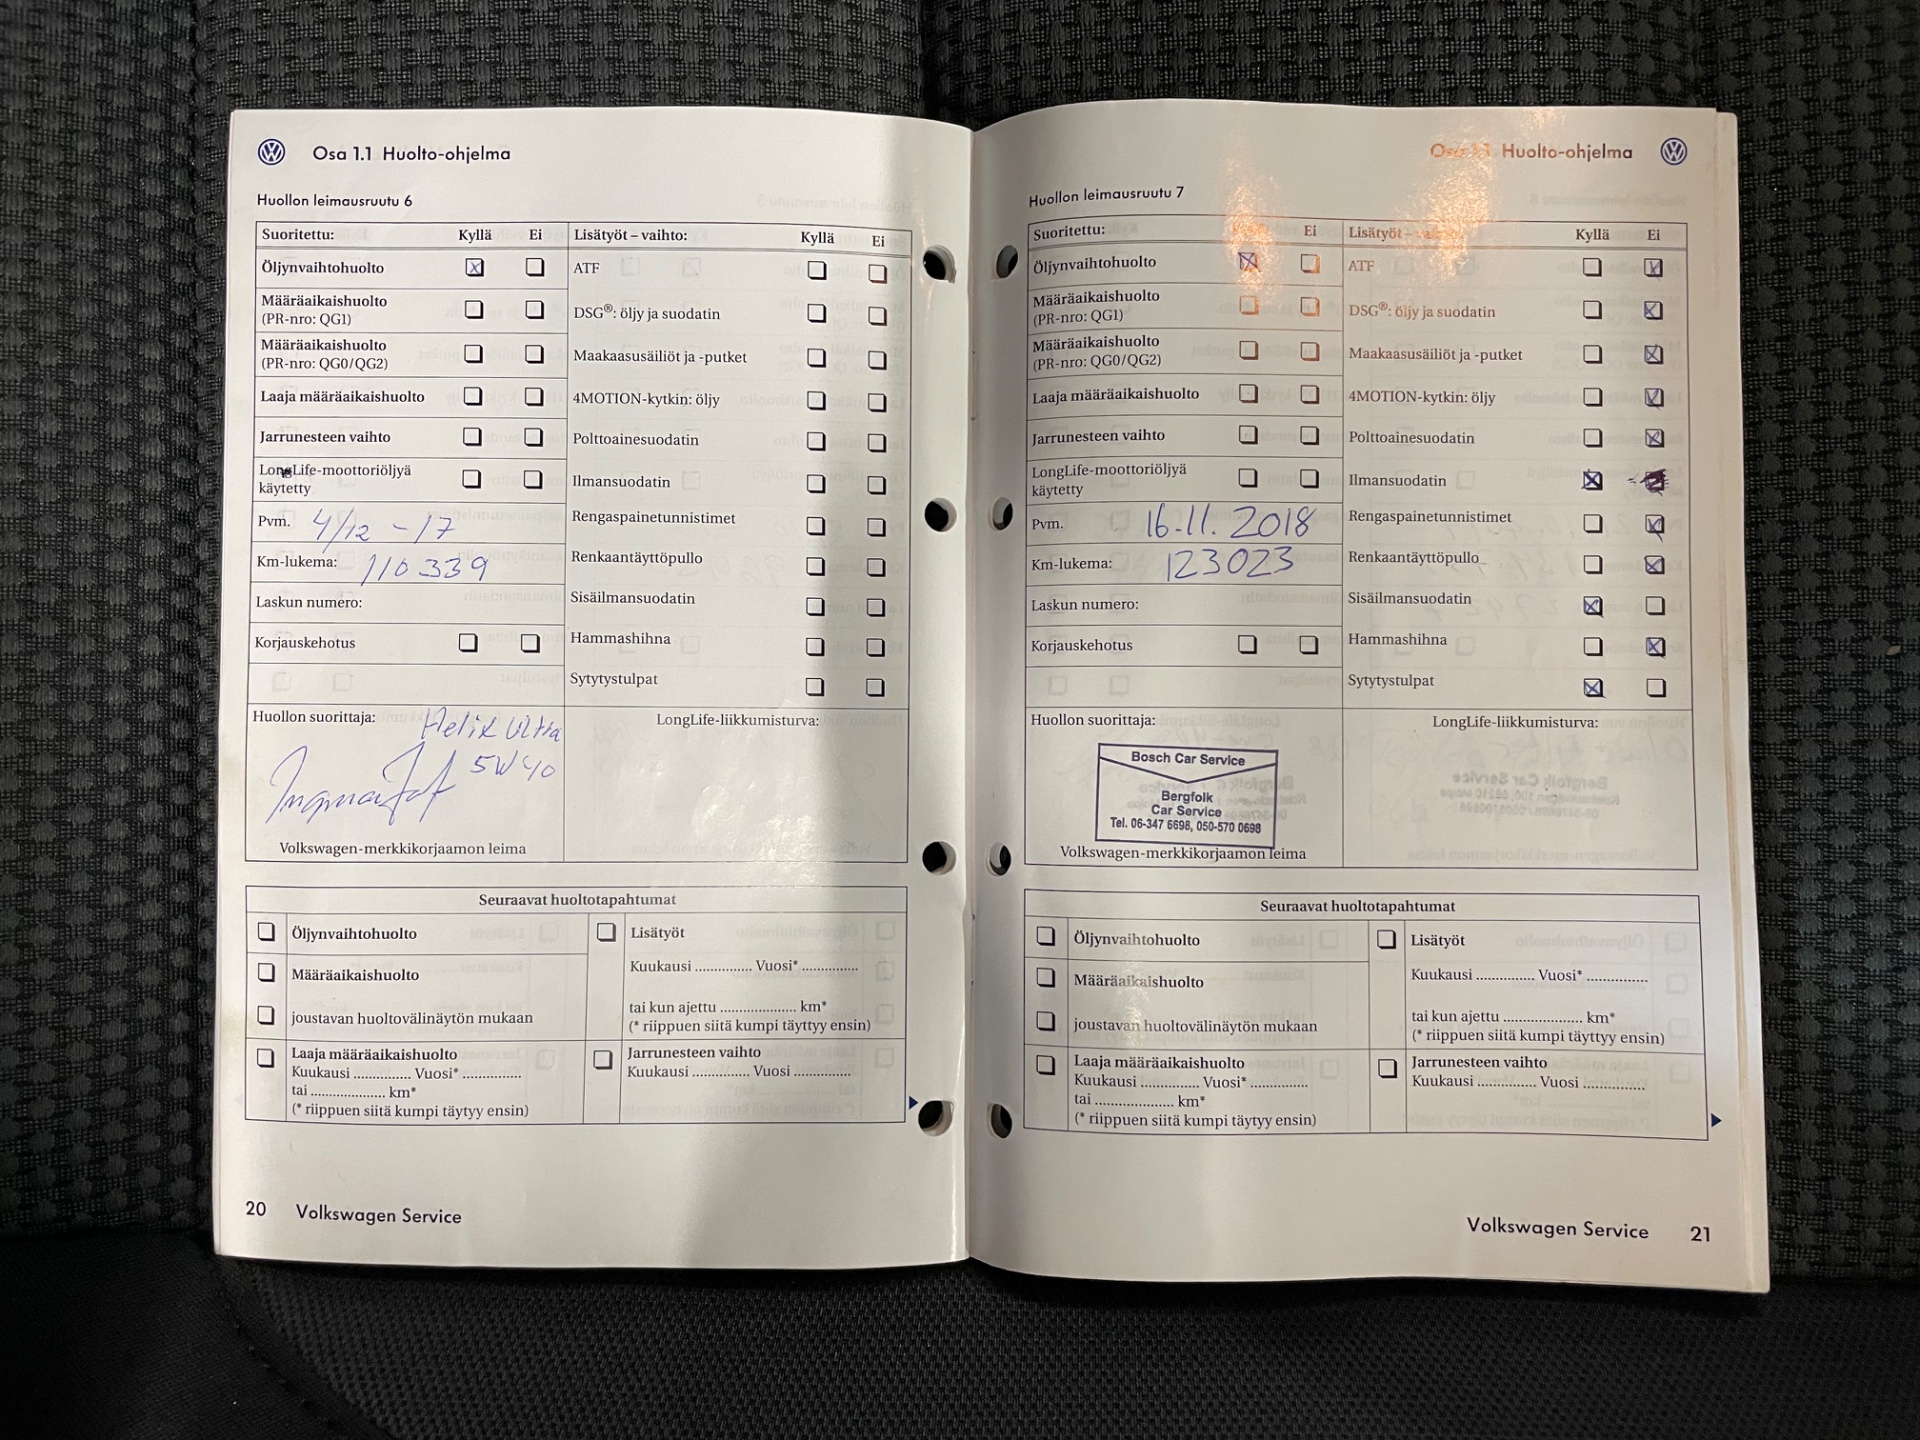 Osa 1.1 Huolto-ohjelma
Huollon leimausruutu 6
Suoritettu: Kyllä Ei Lisätyöt – vaihto: Kyllä Ei
Öljynvaihtohuolto ATF
Määräaikaishuolto
(PR-nro: QG1) DSG®: öljy ja suodatin
Määräaikaishuolto
(PR-nro: QG0/QG2) Maakaasusäiliöt ja -putket
Laaja määräaikaishuolto 4MOTION-kytkin: öljy
Jarrunesteen vaihto Polttoainesuodatin
LongLife-moottoriöljyä
käytetty Ilmansuodatin
Pvm. 4/12 - 17 Rengaspainetunnistimet
Km-lukema: 110 339 Renkaantäyttöpullo
Laskun numero: Sisäilmansuodatin
Korjauskehotus Hammashihna
Sytytystulpat
Huollon suorittaja: Helix Ultra LongLife-liikkumisturva:
5W40
Volkswagen-merkkikorjaamon leima
Seuraavat huoltotapahtumat
Öljynvaihtohuolto Lisätyöt
Määräaikaishuolto Kuukausi .............. Vuosi* ..............
joustavan huoltovälinäytön mukaan tai kun ajettu ................... km*
(* riippuen siitä kumpi täyttyy ensin)
Laaja määräaikaishuolto Jarrunesteen vaihto
Kuukausi .............. Vuosi* .............. Kuukausi .............. Vuosi ..............
tai .................. km*
(* riippuen siitä kumpi täytyy ensin)
20 Volkswagen Service
Osa 1.1 Huolto-ohjelma
Huollon leimausruutu 7
Suoritettu: Kyllä Ei Lisätyöt – vaihto: Kyllä Ei
Öljynvaihtohuolto ATF
Määräaikaishuolto
(PR-nro: QG1) DSG®: öljy ja suodatin
Määräaikaishuolto
(PR-nro: QG0/QG2) Maakaasusäiliöt ja -putket
Laaja määräaikaishuolto 4MOTION-kytkin: öljy
Jarrunesteen vaihto Polttoainesuodatin
LongLife-moottoriöljyä
käytetty Ilmansuodatin
Pvm. 16.11.2018 Rengaspainetunnistimet
Km-lukema: 123023 Renkaantäyttöpullo
Laskun numero: Sisäilmansuodatin
Korjauskehotus Hammashihna
Sytytystulpat
Huollon suorittaja: LongLife-liikkumisturva:
Bosch Car Service
Bergfolk
Car Service
Tel. 06-347 6698, 050-570 0698
Volkswagen-merkkikorjaamon leima
Seuraavat huoltotapahtumat
Öljynvaihtohuolto Lisätyöt
Määräaikaishuolto Kuukausi .............. Vuosi* ..............
joustavan huoltovälinäytön mukaan tai kun ajettu ................... km*
(* riippuen siitä kumpi täyttyy ensin)
Laaja määräaikaishuolto Jarrunesteen vaihto
Kuukausi .............. Vuosi* .............. Kuukausi .............. Vuosi ..............
tai .................. km*
(* riippuen siitä kumpi täytyy ensin)
Volkswagen Service 21